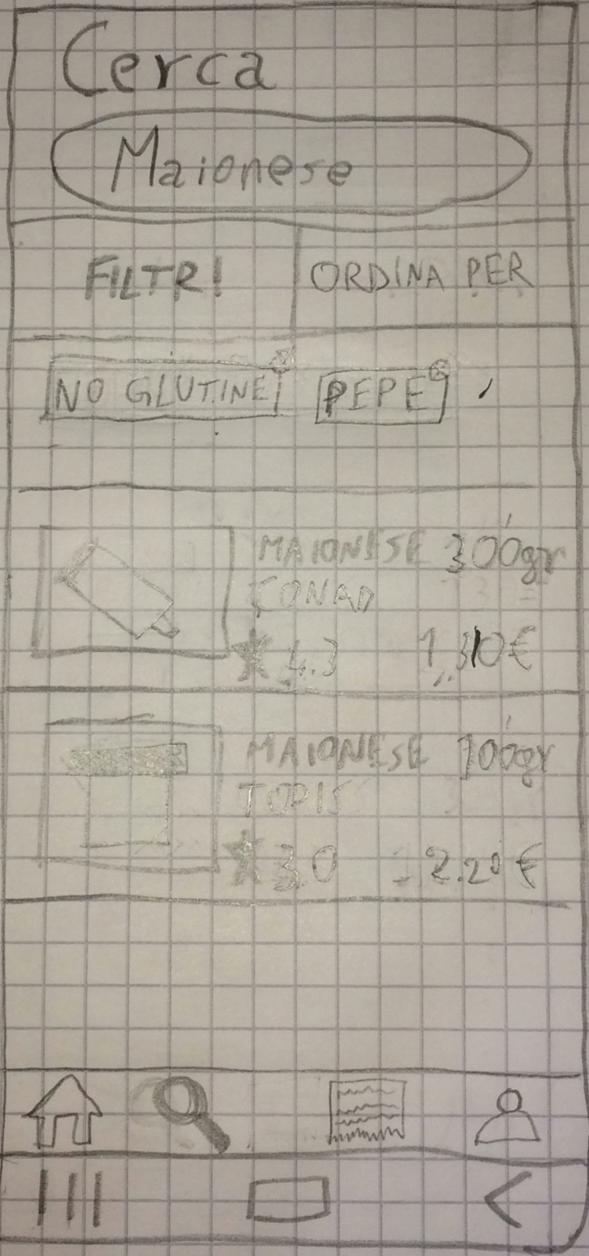 Cerca
Maionese
FILTRI
ORDINA PER
NO GLUTINE
PEPE
MAIONESE 300gr
CONAD
4.3 1,30€
MAIONESE 700gr
TOPIS
3.0 2.20€